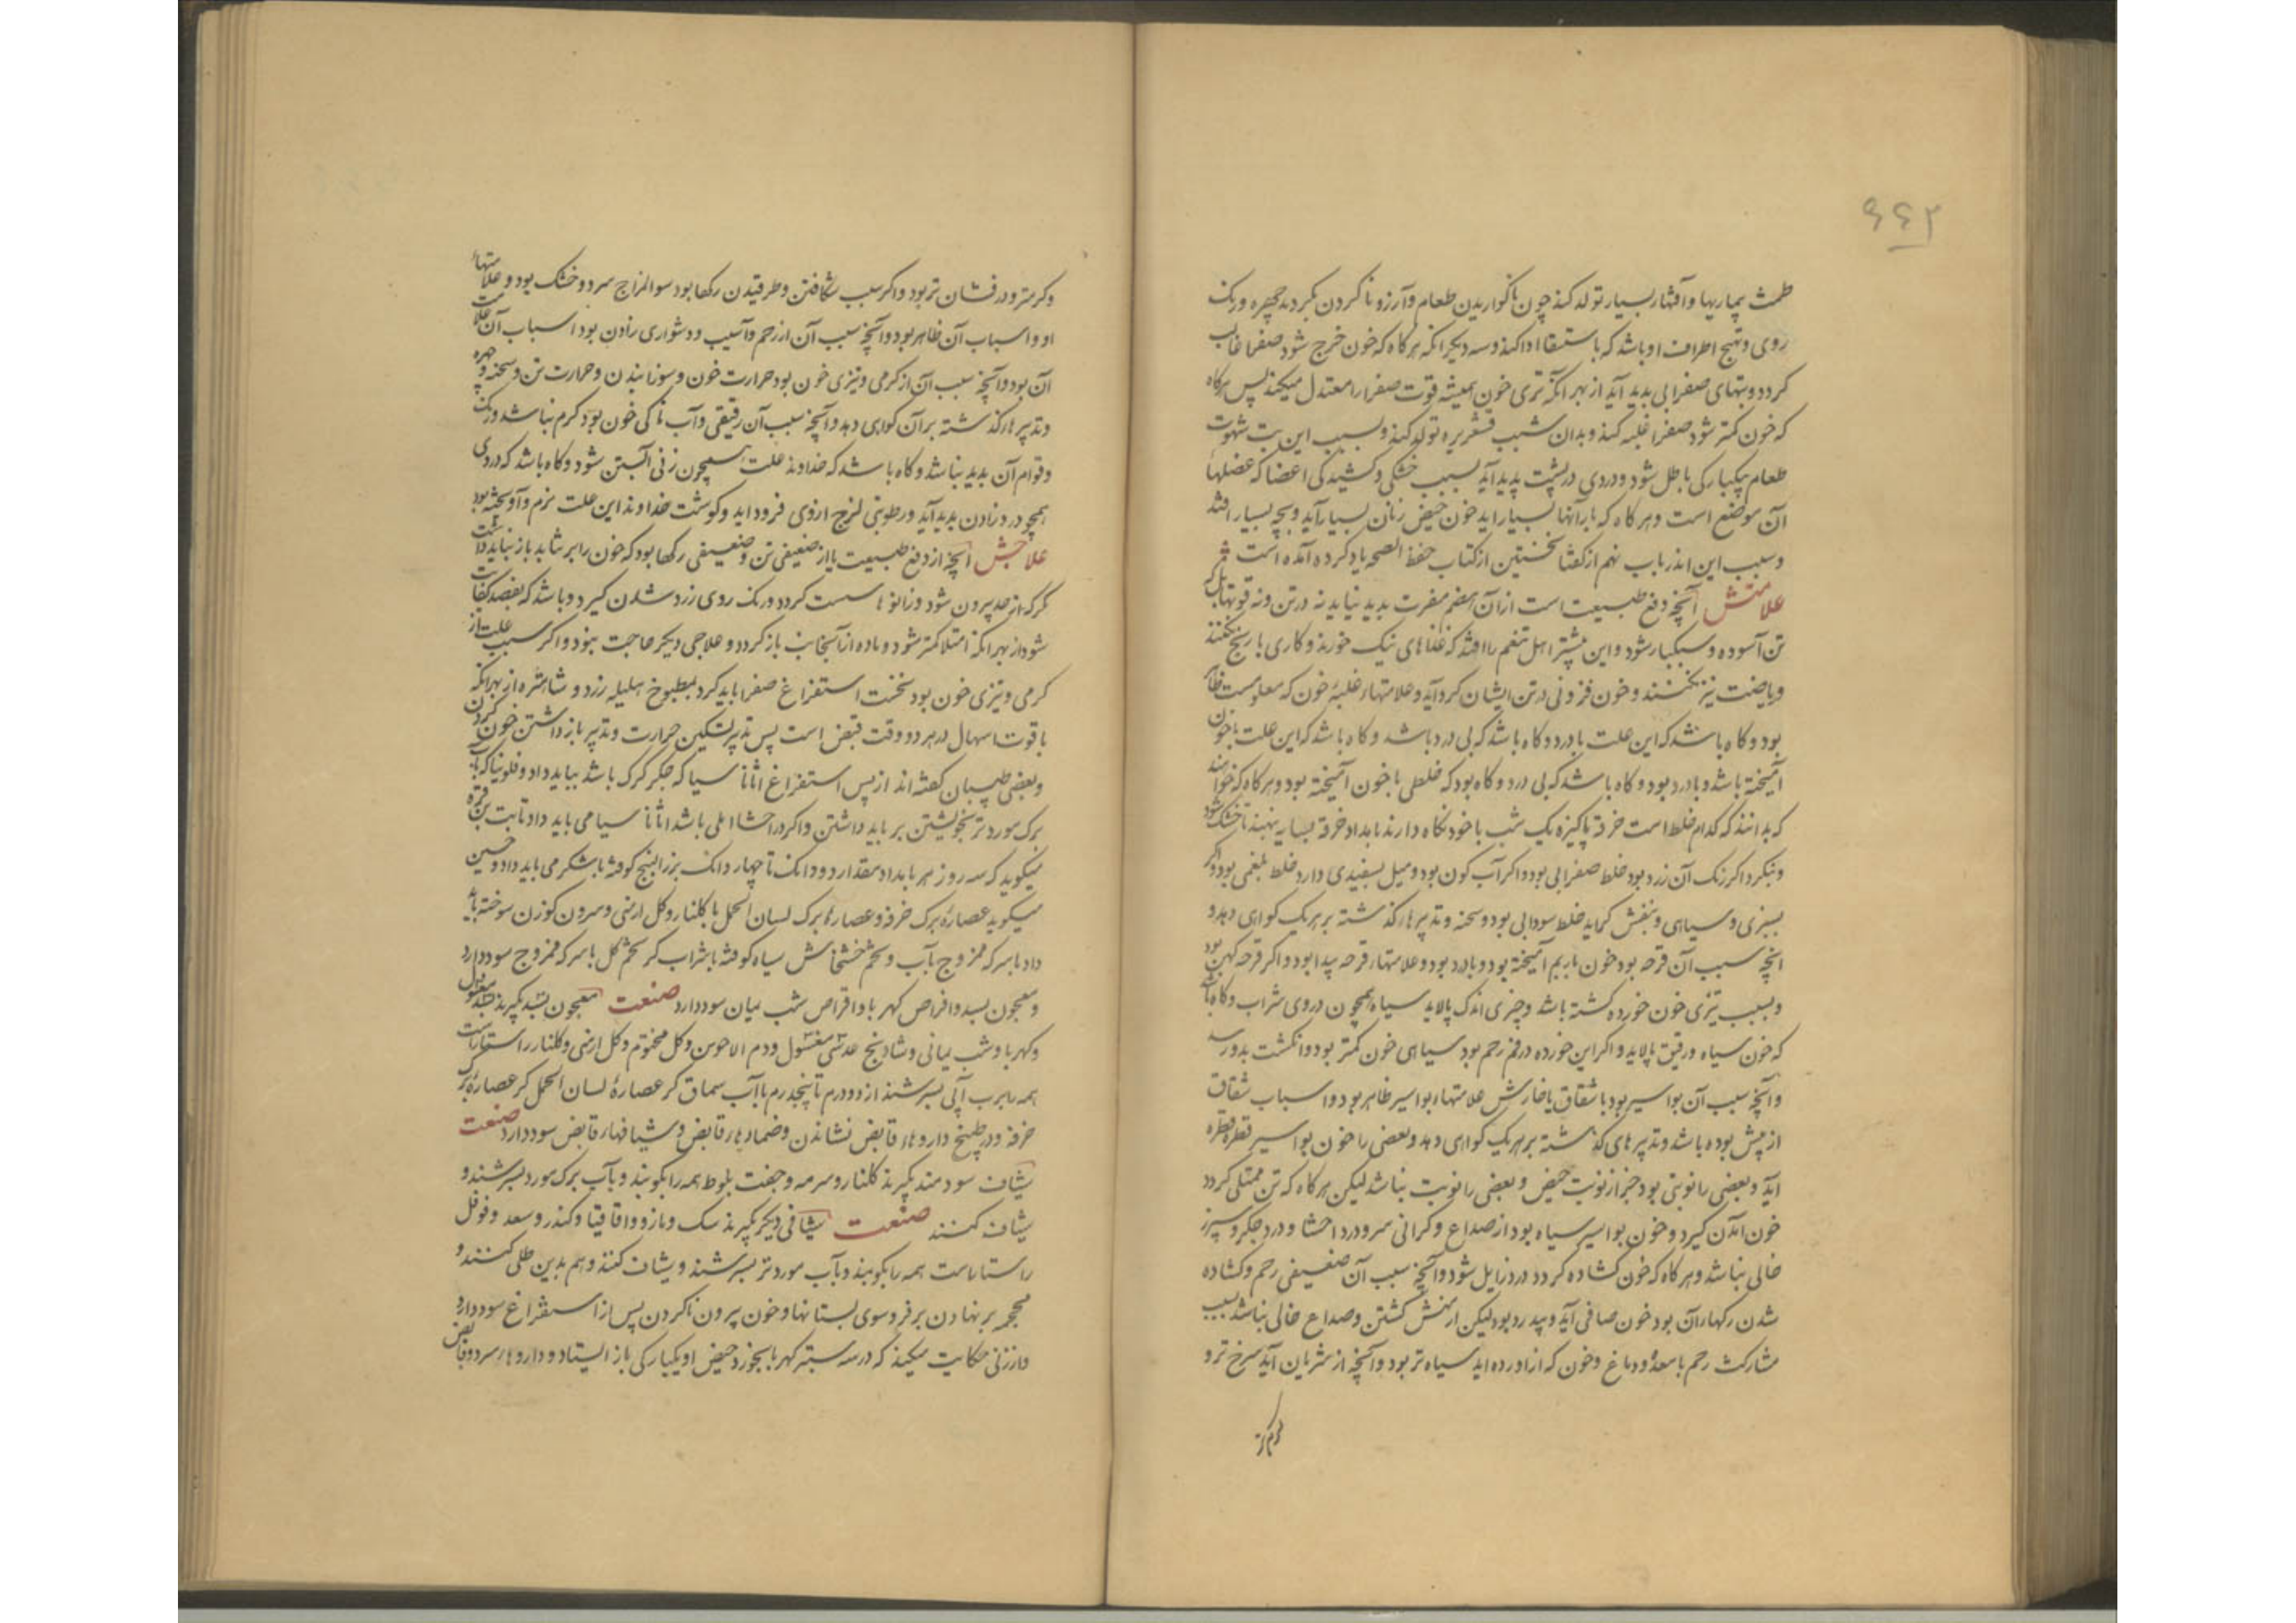 ۶۴۳
طمث بیماریها و آفتهار بسیار تولد کند چون ناگواریدن طعام و آرزو نا کردن بگردد چهره و رنک
روی و تهبج اطراف او باشد که باستسقا ادا کند و سه دیکر انکه هر کاه که خون خرج شود صفرا غالب
کردد و تبهای صفرایی بدید آید از بهر انکه تری خون همیشه قوت صفرا را معتدل میکند پس هرکاه
که خون کمتر شود صفرا غلبه کند و بدان سبب قشعریره تولد کند و بسبب این تب شهوت
طعام بیکبارکی باطل شود و دردی در پشت پدید آید بسبب خشکی و کشیدکی اعضا که عضلهاء
آن موضع است و هر کاه که بارانها بسیار اید خون حیض زنان بسیار آید و بچه بسیار افتد
و سبب این اندر باب نهم از کفتار نخستین از کتاب حفظ الصحه یاد کرده آمده است
علامتش آنچه دفع طبیعت است از آن هیچ مضرت بدید نیاید نه در تن و نه در قوتها بلکه
تن آسوده و سبکبار شود و این بیشتر اهل تنعم را افتد که غذاهای نیک خورند و کاری با رنج نکنند
و ریاضت نیز نکنند و خون فزونی در تن ایشان کرد آید و علامتهاء غلبهٔ خون که معلومست ظاهر
بود و کاه باشد که این علت با درد و کاه باشد که بی درد باشد و کاه باشد که این علت با خون
آمیخته باشد و با درد بود و کاه باشد که بی درد و کاه بود که خلطی با خون آمیخته بود و هر کاه که خواهند
که بدانند که کدام خلط است خرقهٔ پاکیزه یک شب با خود نکاه دارند بامداد خرقه بسایه بنهند تا خشک شود
و بنکرد اکر رنک آن زرد بود خلط صفرایی بود و اکر آب کون بود و میل بسفیدی دارد خلط بلغمی بود و اکر
بسبزی و سیاهی و بنفش کراید خلط سودایی بود و سحنه و تدبیرهاء کذشته بر هریک کواهی دهد و
انچه سبب آن قرحه بود خون با ریم آمیخته بود و با درد بود و علامتهاء قرحه پیدا بود و اکر قرحه کهن بود
و بسبب تیزی خون خورده کشته باشد و چیزی اندک پالاید سیاه همچون دردی شراب و کاه باشد
که خون سیاه و رقیق پالاید و اکر این خورده در فم رحم بود سیاهی خون کمتر بود و انکشت بدو رسد
و آنچه سبب آن بواسیر بود با شقاق یا خارش علامتهاء بواسیر ظاهر بود و اسباب شقاق
از پیش بوده باشد و تدبیرهای کذشته بر هریک کواهی دهد و بعضی را خون بواسیر قطره قطره
آید و بعضی را نوبتی بود جز از نوبت حیض و بعضی را نوبت نباشد لیکن هر کاه که تن ممتلی کردد
خون آمدن کیرد و خون بواسیر سیاه بود از صداع و کرانی سر و درد احشا و درد جکر و سپرز
خالی نباشد و هر کاه که خون کشاده کردد درد زایل شود و آنچه سبب آن ضعیفی رحم و کشاده
شدن رکهاء آن بود خون صافی آید و بیدرد بود لیکن از منش کشتن و صداع خالی نباشد بسبب
مشارکت رحم با معده و دماغ و خون که از اورده اید سیاه تر بود و آنچه از شریان آید سرخ تر و
کرم تر
و کرمتر و درفشان تر بود و اکر سبب شکافتن و طرقیدن رکها بود سوء المزاج سرد و خشک بود و علامتهاء
او و اسباب آن ظاهر بود و آنچه سبب آن از زحم و آسیب و دشواری زادن بود اسباب آن علامت
آن بود و آنچه سبب آن از کرمی و تیزی خون بود حرارت خون و سوزانیدن و حرارت تن و سحنه و چهره
و تدبیرهاء کذشته بر آن کواهی دهد و آنچه سبب آن رقیقی و آب ناکی خون بود کرم نباشد و رنک
و قوام آن بدید نباشد و کاه باشد که خداوند علت همچون زنی آبستن شود و کاه باشد که دردی
همچو درد زادن بدید آید و رطوبتی لزج از وی فرود اید و کوشت خداوند این علت نرم و آویخته بود
علاجش آنچه از دفع طبیعت یا از ضعیفی تن و ضعیفی رکها بود که خون را بر نتابد باز نباید داشت
مکر که از حد بیرون شود و زانوها سست کردد و رنک روی زرد شدن کیرد و باشد که بفصد کفایت
شود از بهر انکه امتلا کمتر شود و ماده از آنجانب باز کردد و علاجی دیکر حاجت نبود و اکر سبب علت از
کرمی و تیزی خون بود نخست استفراغ صفرا باید کرد بمطبوخ هلیله زرد و شاهتره از بهر انکه
با قوت اسهال در هر دو قوت قبض است پس تدبیر تسکین حرارت و تدبیر باز داشتن خون کردن
و بعضی طبیبان کفته اند از پس استفراغ اثانا سیا که جکر کرک باشد بباید داد و فلونیا که بآب
برک مورد تر بخویشتن بر باید داشتن و اکر در احشا املی باشد اثانا سیا می باید داد ثابت بن قره
میکوید که سه روز هر بامداد مقدار دو دانک تا چهار دانک بزر البنج کوفته با شکر می باید داد و حسین
میکوید عصارهٔ برک خرفه و عصارهٔ برک لسان الحمل با کلنار و کل ارمنی و سرون کوزن سوخته باید
داد با سرکه ممزوج بآب و تخم خشخاش سیاه کوفته با شراب کر تخم کل با سرکه ممزوج سود دارد
و معجون بسد و اقراص کهربا و اقراص شب یمان سود دارد صنعت معجون بسد بکیرند بسد مغسول
و کهربا و شب یمانی و شادنج عدسی مغسول و دم الاخوین و کل مختوم و کل ارمنی و کلنار راستاراست
همه را برب آبی بسرشند از دو درم تا پنجدرم با آب سماق کر عصارهٔ لسان الحمل کر عصارهٔ برک
خرفه و در طبیخ داروهاء قابض نشاندن و ضمادهاء قابض و شیافهاء قابض سود دارد صنعت
شیاف سودمند بکیرند کلنار و سرمه و جفت بلوط همه را بکوبند و بآب برک مورد بسرشند و
شیاف کنند صنعت شیافی دیکر بکیرند سک و مازو و اقاقیا و کندر و سعد و فوفل
راستاراست همه را بکوبند و بآب مورد تر بسرشند و شیاف کنند و هم بدین طلی کنند و
محجمه بر نهادن بر فروسوی پستانها و خون بیرون ناکردن پس از استفراغ سود دارد
و از زنی حکایت میکند که در سه بسته کهربا بخورد حیض او یکبارکی باز ایستاد و داروهاء سرد و قابض